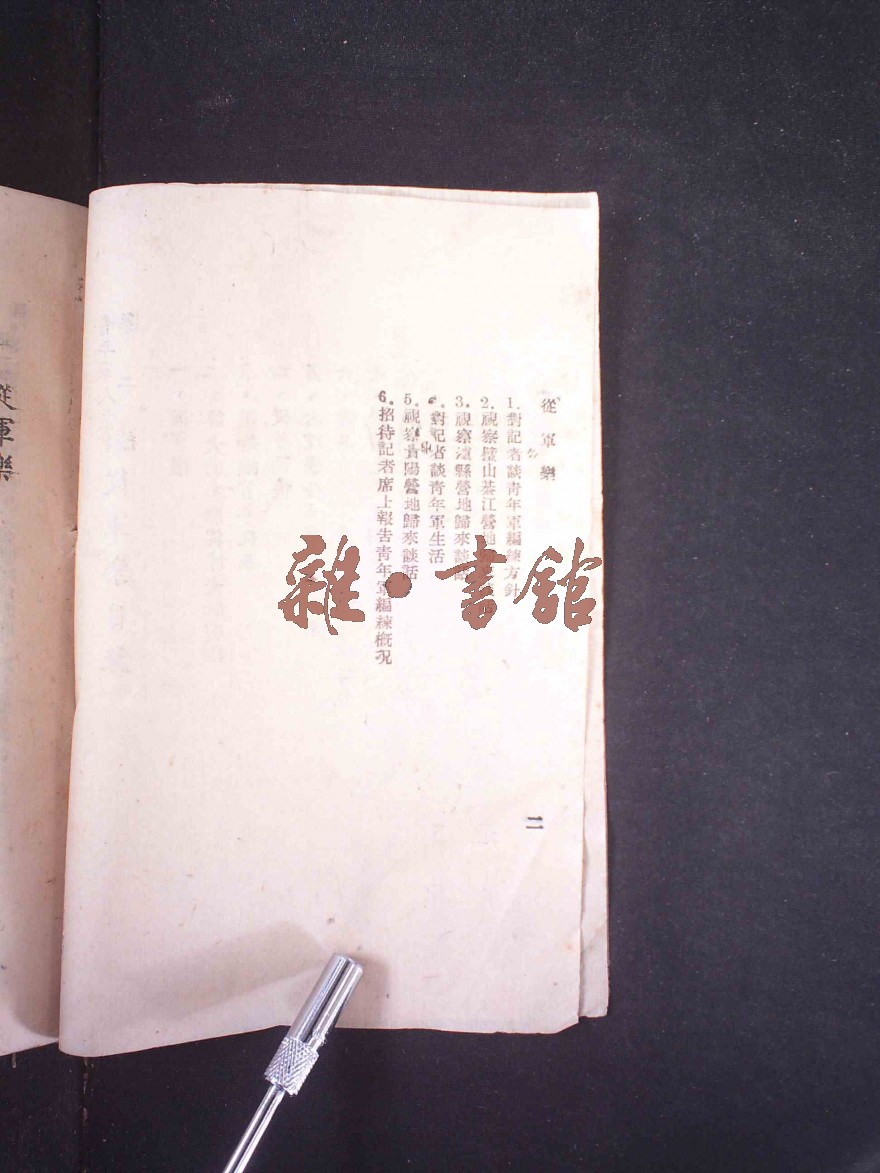 從軍樂
1.對記者談青年軍編練方針
2.視察璧山綦江營地
3.視察瀘縣營地歸來談話
對記者談青年軍生活
5.視察貴陽營地歸來談話
6.招待記者席上報告青年軍編練概況
二
從軍樂
雜·書館